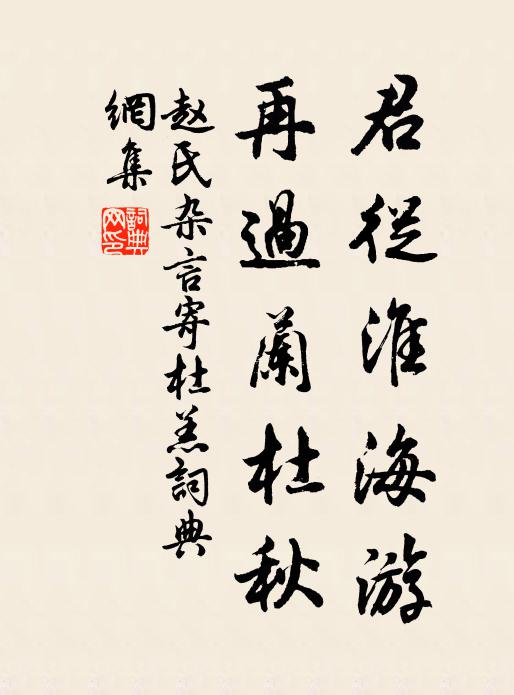 君從淮海游
再過蘭杜秋
赵氏杂言寄杜羔詞典
網集
詞典
网印